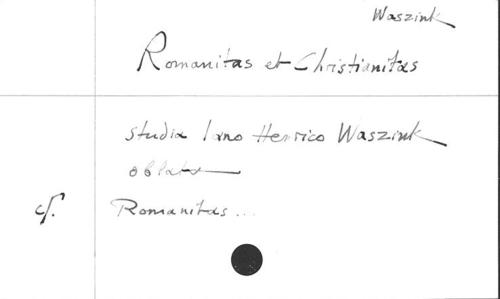 Waszink
Romanitas et Christianitas
studia Iano Henrico Waszink
oblata
cf. Romanitas...